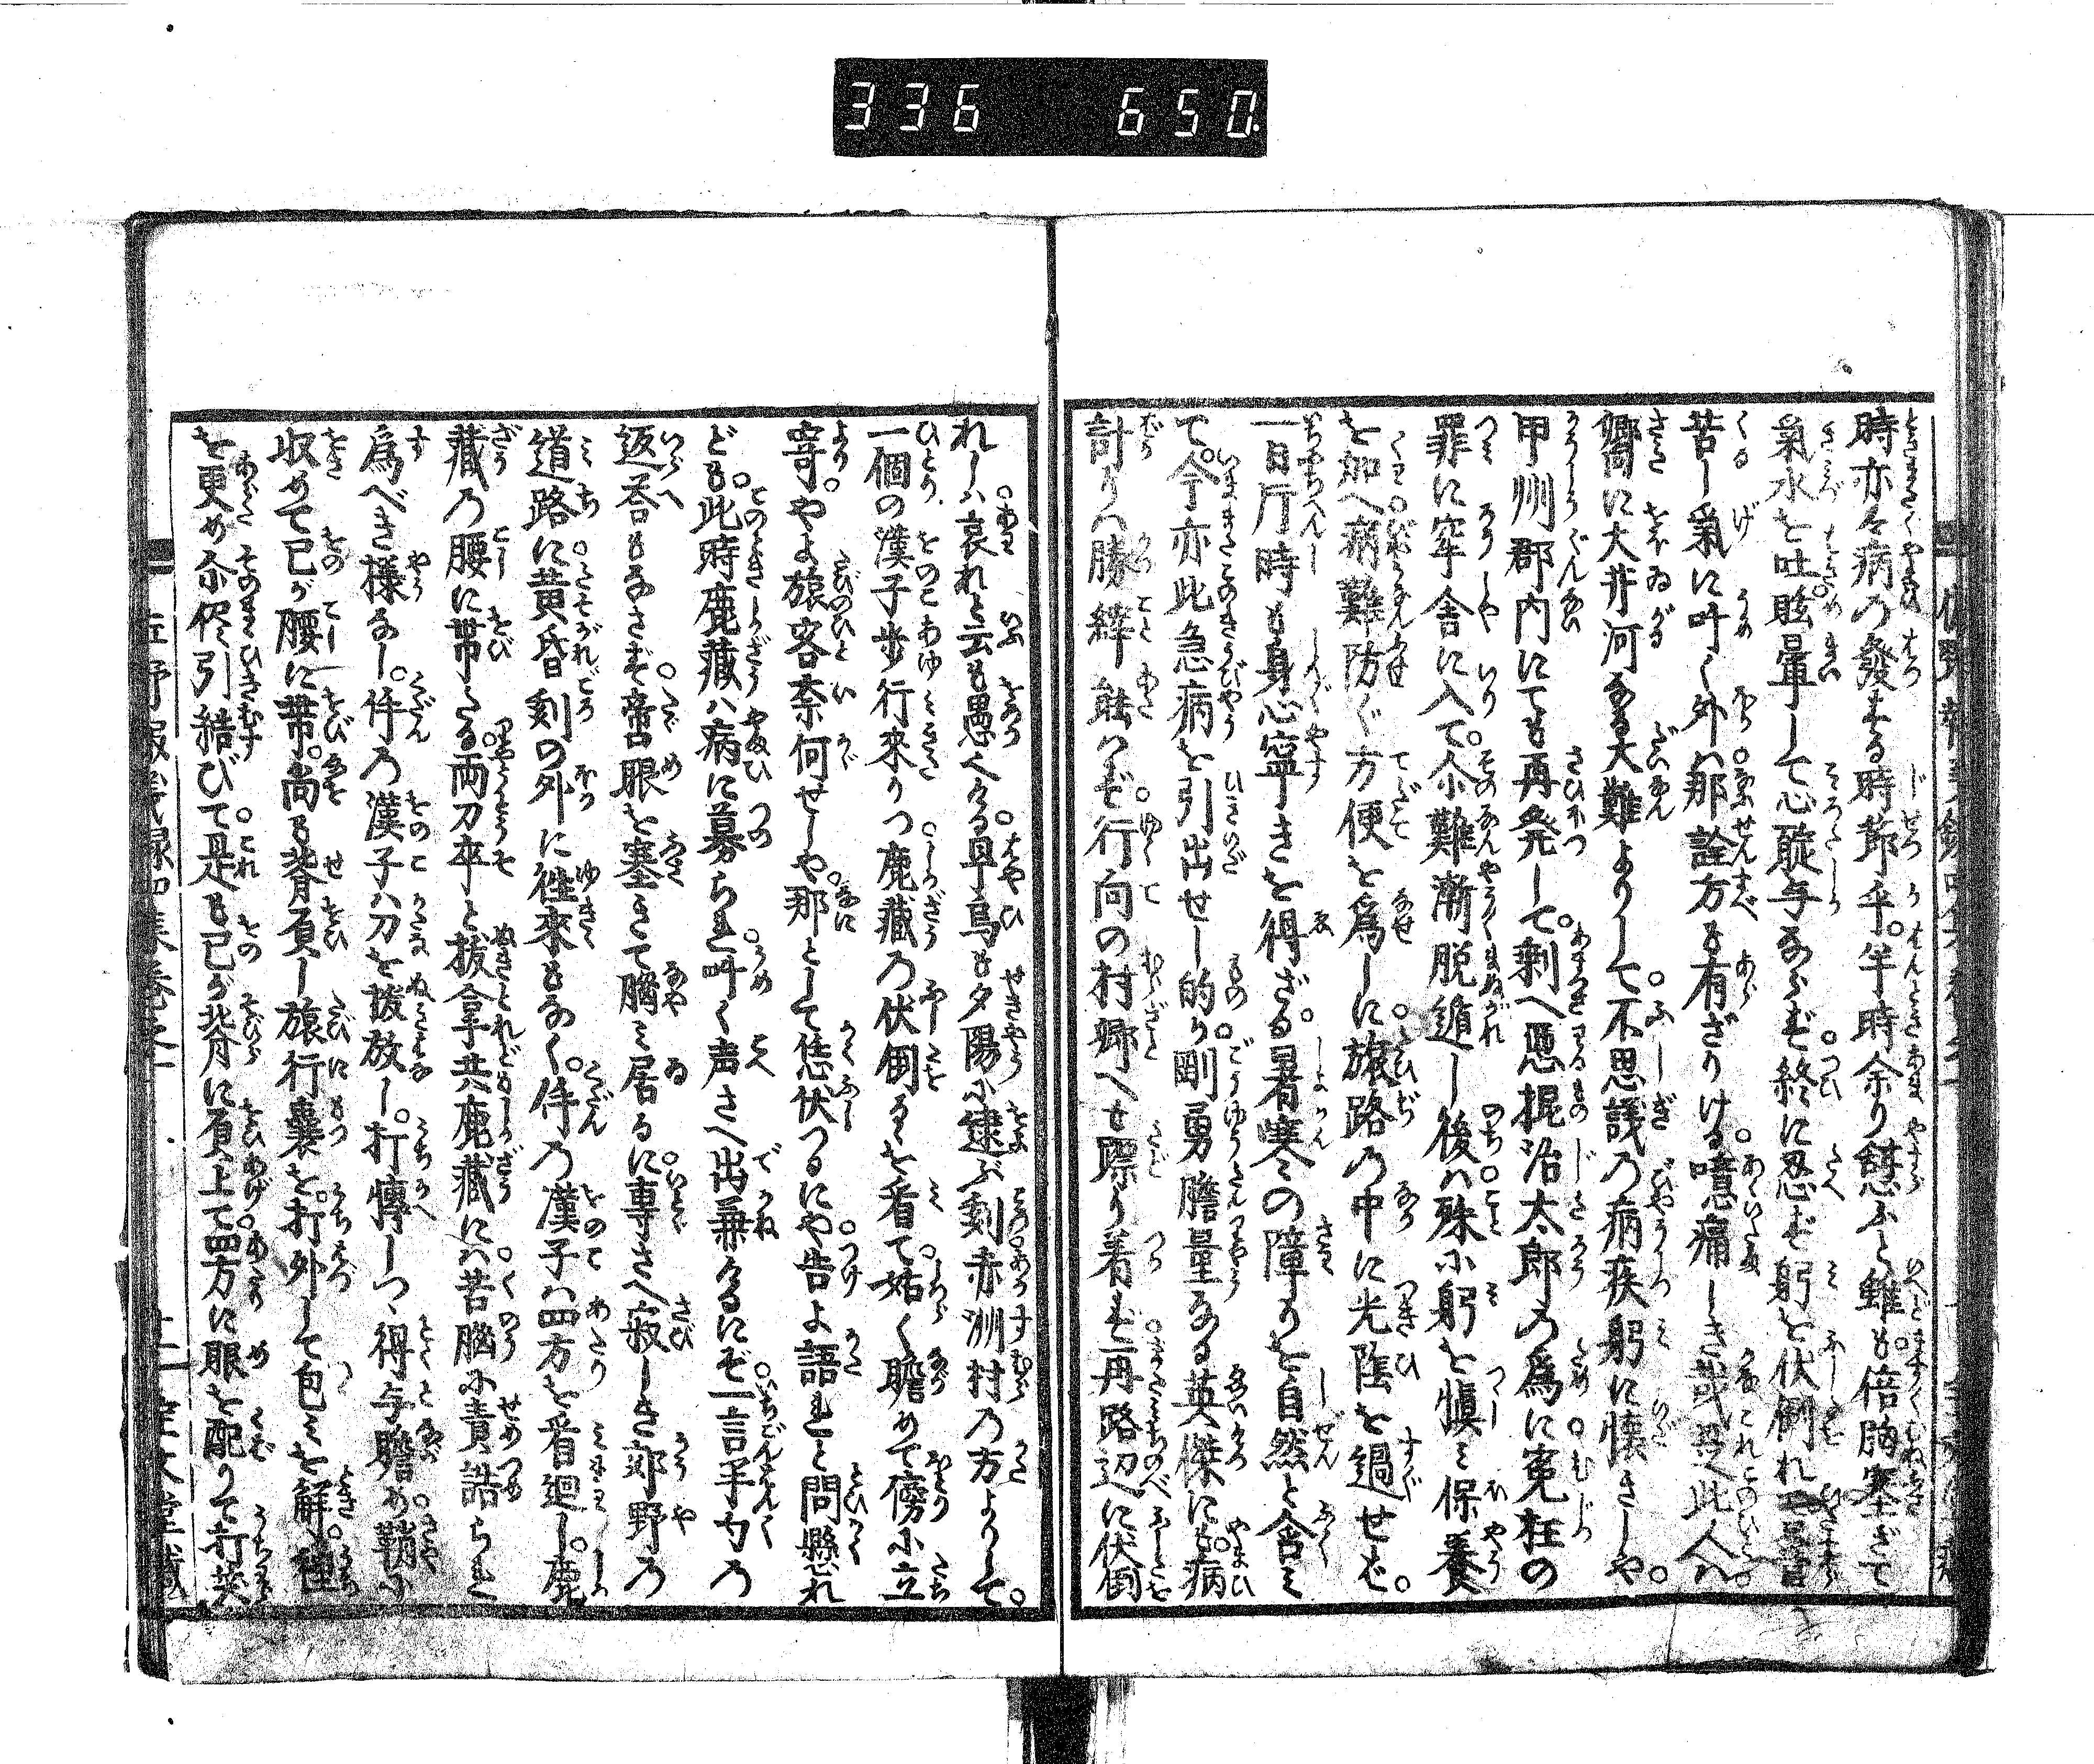 336 650.
時亦々病の發する時節乎。半時余り憩ふと雖も。倍胸塞ぎて
氣水を吐。眩暈して心聢与ならず。終に忍ず躬を伏倒れ
苦し氣に叫く外は。那詮方も有ざりける。噫痛しき哉是此人は。
嚮に大井河なる大難よりして。不思議の病疾躬に懐きしや。
甲州郡内にても再発して。剰へ悪棍治太郎の爲に。寃枉の
罪に牢舎に入て。尒難漸脱遁し後は。殊に躬を愼み保養
を加へ。病難防ぐ方便を爲しに。旅路の中に光陰を過せば。
一日片時も身心寧きを得ざる。暑寒の障りを自然と含み
て。今亦此急病を引出せし的か。剛勇膽量なる英傑にも。病
計りは勝縡能はず。行向の村郷へも聢り着ず。再路辺に伏倒
れしは。哀れと云も愚くなる。早烏も夕陽に逮ぶ刻。赤洲村の方よりして。
一個の漢子歩行來りつ。鹿藏の伏倒るを看て。姑く瞻めて傍に立
寄。やよ旅客奈何せしや。那として恁伏つるにや。告よ語れと問懸れ
ども。此時鹿藏は病に募られ。叫く声さへ出兼なるにぞ。一言半句の
返荅もなさず。啻眼を塞ぎて惱み居るに。専さへ寂しき郊野の
道路に。黄昏刻の外に徃來もなく。件の漢子は四方を看廻し。鹿
藏の腰に帯たる。両刀卒と拔拿共。鹿藏には。苦腦に責詰られ
爲べき樣なし。件の漢子は刀を拔放し。打慱しつゝ得与瞻め。鞘に
收めて己が腰に帯。尚も背負し旅行嚢を。打外して包みを解。種
を更め尒侭引結びて。是も己が背に負上て。四方に眼を配りて。打笑